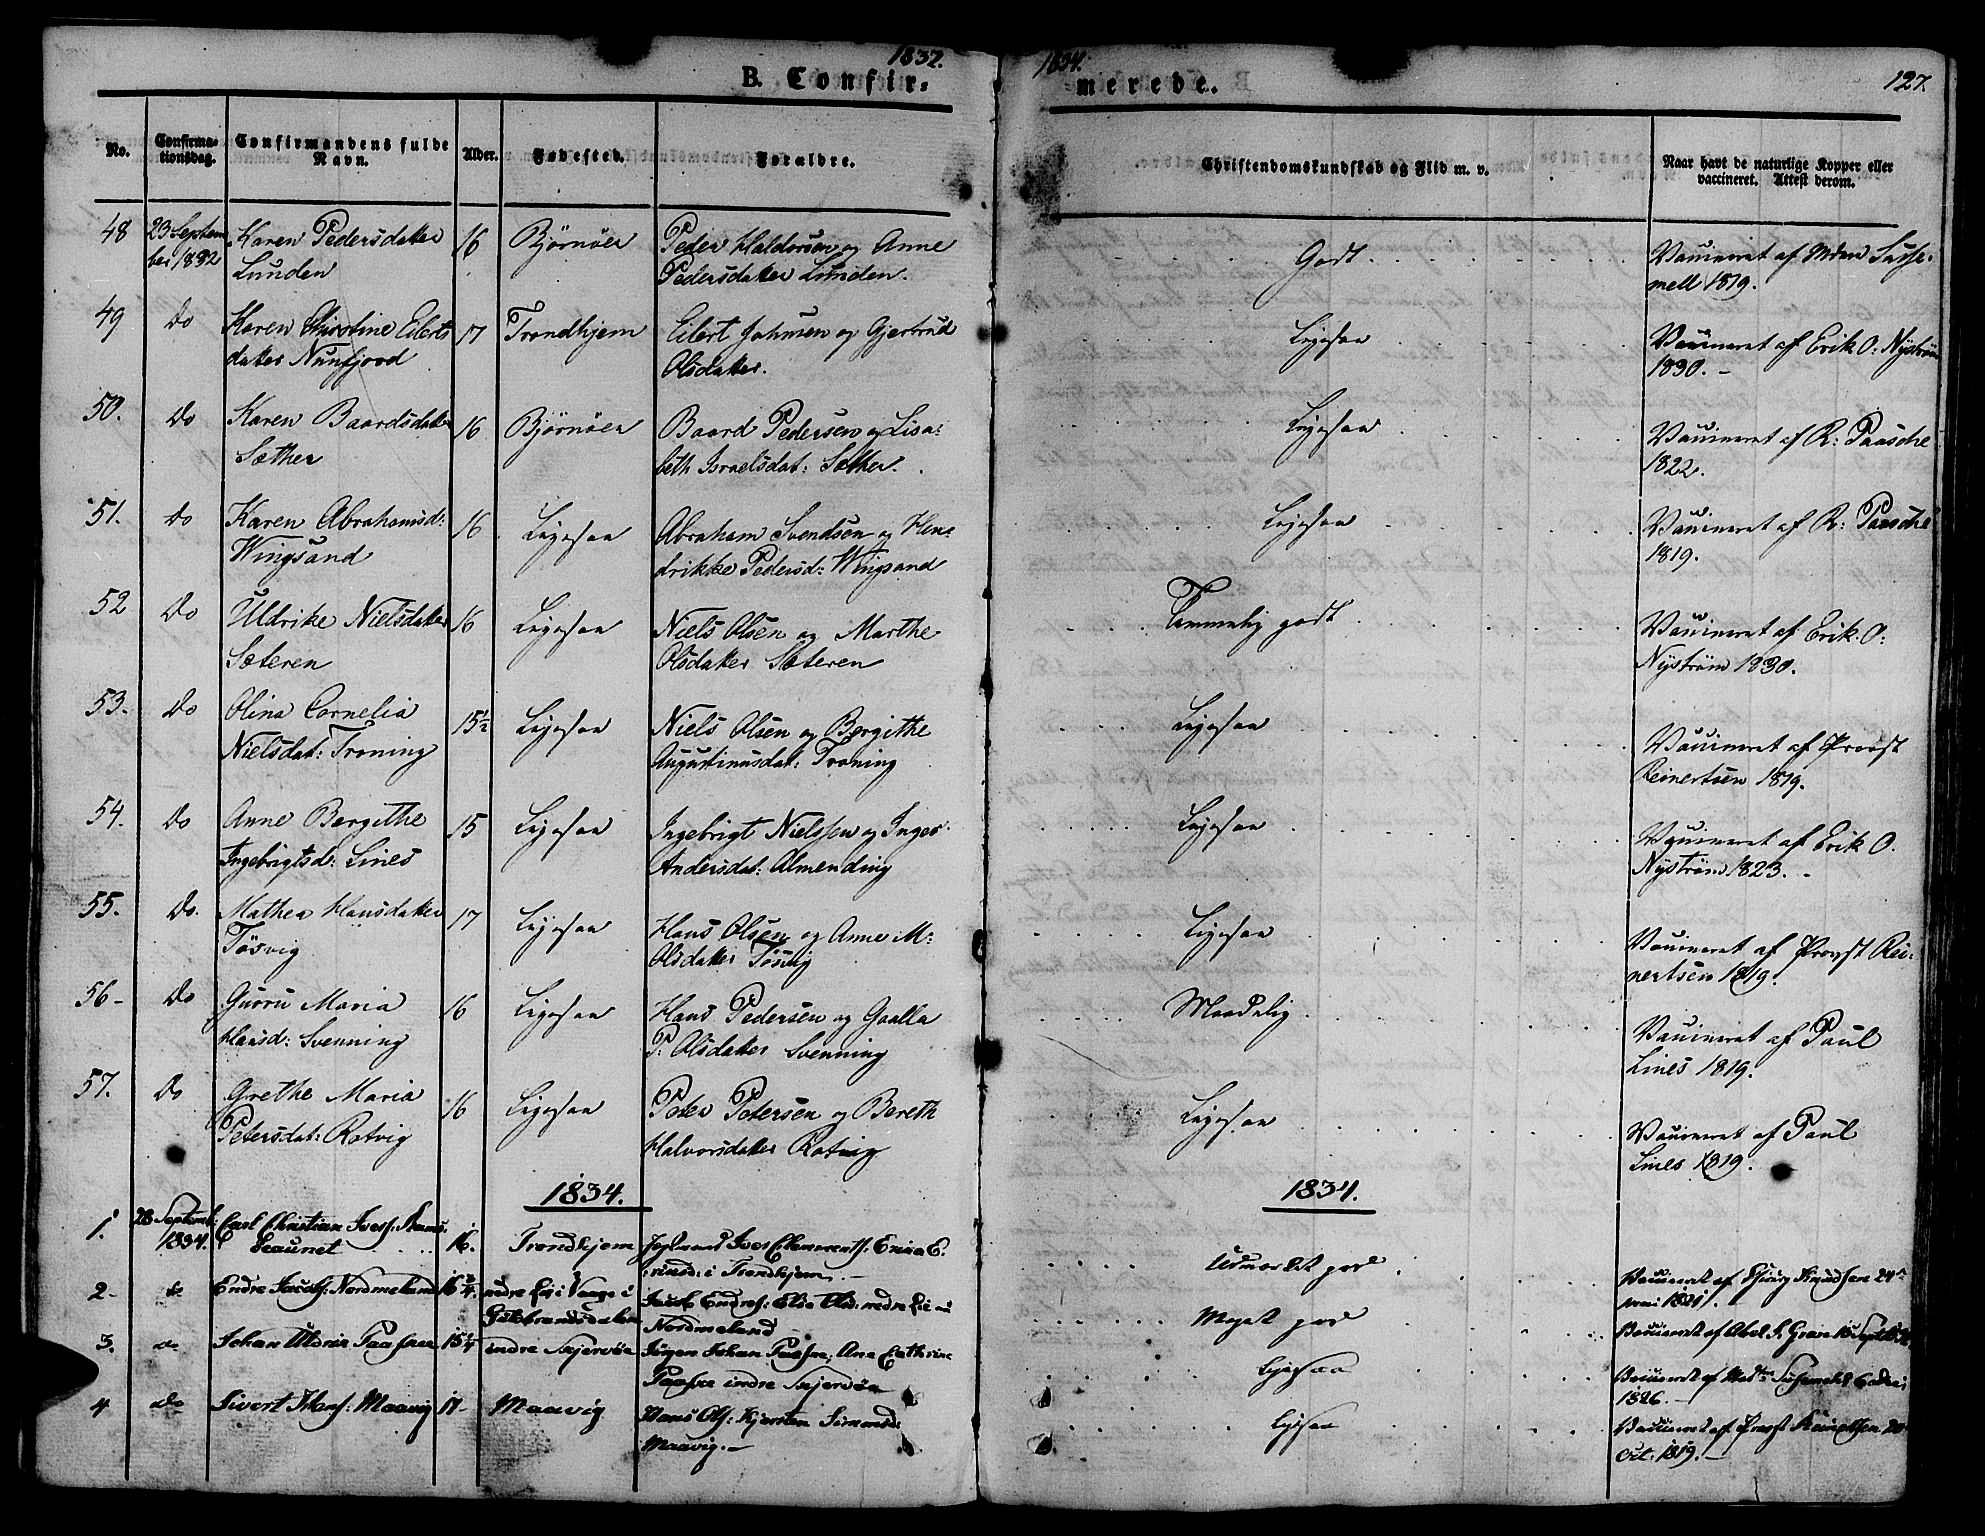 1832.
1834.
127.
B. Confir-
merede.
No.
Confirma-
tionsdag.
Confirmandens fulde
Navn.
Alder.
Fødested.
Forældre.
Christendomskundskab og Flid m. v.
Naar havt de naturlige Kopper eller
vaccineret. Attest derom.
48
23 Septem
ber 1832
Karen Pedersdatter
Lunden
16
Bjørnöer
Peder Haldorsen og Anne
Pedersdatter Lunden.
Godt
Vaccineret af Mdm Susse-
mell 1819.
49
Do
Karen Christine Eilerts
datter Nunfjord
17
Trondhjem
Eilert Johnsen og Gjertrud
Olsdatter.
Ligesaa
Vaccineret af Erik O: Nyström
1830.
50.
Do
Karen Baardsdatter
Sæther
16
Bjørnöer
Baard Pedersen og Lisa-
beth Israelsdat: Sæther.
Ligesaa
Vaccineret af R: Paasche
1822.
51.
Do
Karen Abrahamsd:
Wingsand
16
Ligesaa
Abraham Svendsen og Hen-
drikke Pedersd: Wingsand
Ligesaa
Vaccineret af R: Paasche
1819.
52
Do
Uldrike Nielsdatter
Sæteren
16
Ligesaa
Niels Olsen og Marthe
Olsdatter Sæteren
Temmelig godt
Vaccineret af Erik O:
Nyström 1830.
53.
Do
Olina Cornelia
Nielsdat: Troning
15 1/2
Ligesaa
Niels Olsen og Bergithe
Augustinusdat: Troning
Ligesaa
Vaccineret af Provst
Reinertsen 1819.
54.
Do
Anne Bergithe
Ingebrigtsd: Lines
15
Ligesaa
Ingebrigt Nielssen og Inger
Andersdat: Almending
Ligesaa
Vaccineret af Erik O.
Nyström 1823.
55.
Do.
Mathea Hansdatter
Tösvig
17
Ligesaa
Hans Olsen og Anne M:
Olsdatter Tösvig
Ligesaa
Vaccineret af Provst Rei-
nertsen 1819.
56
Do
Gurru Maria
Hansd: Svenning
16
Ligesaa
Hans Pedersen og Gaalla
P: Olsdatter Svenning
Maadelig
Vaccineret af Paul
Lines 1819.
57.
Do
Grethe Maria
Petersdat: Ratvig
16
Ligesaa
Peter Petersen og Bereth
Halvorsdatter Ratvig
Ligesaa
Vaccineret af Paul
Lines 1819.
1834.
1834.
1.
28 Septemb:
1834.
Carl Christian Ives:
16.
Trondhjem
i Trondhjem
Udmærket god
Vaccineret af Knudsen 24
1821.
2
do
Endre Jacobs: Nordmeland
16 3/4
Guldbrandsdalen
Jacob Endres:
Nordmeland
Meget god
Vaccineret af Abel S. Gran 18 Sept
3.
do
Johan Paasche
15 1/4
indre Skjervöe
Jörgen Johan Paasche, Ane Cathrine
Paasche indre Skjervöe
Ligesaa
Vaccineret af
1826.
4
do
Sivert Hans: Maavig
17
Maavig
Hans Ols: Kjersten Simonsd:
Maavig.
Ligesaa
Vaccineret af Provst Reinertsen 20
Oct: 1819.